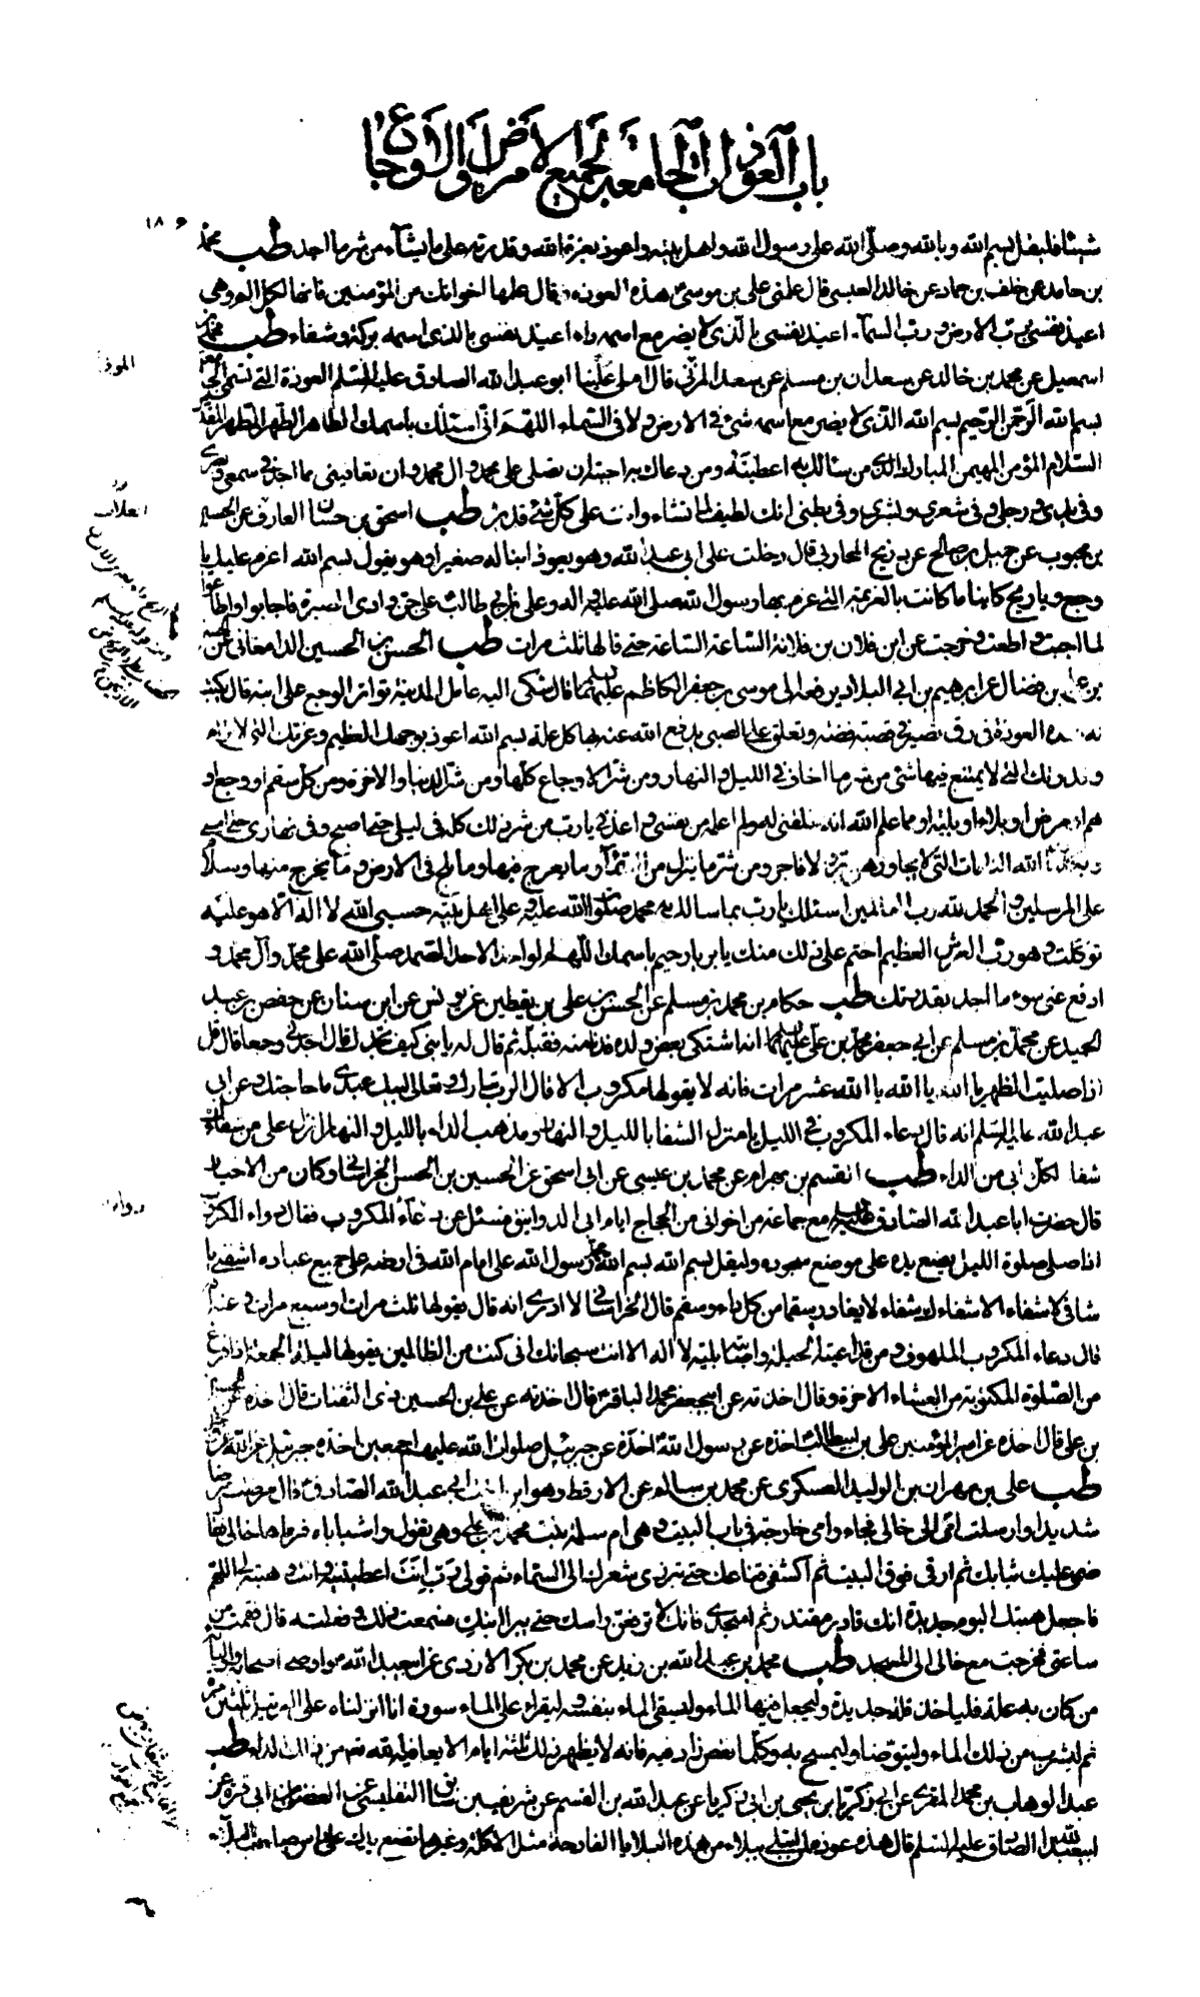 باب العوذات الجامعة لجميع الأمراض والأوجاع
١٨٦
شيئا فليقل بسم الله وبالله وصلى الله على رسول الله واهل بيته واعوذ بعزة الله وقدرته على ما يشاء من شر ما اجد طب محمد
بن حامد عن خلف بن حماد عن خالد العبسي قال علمني علي بن موسى هذه العوذة وقال علمها اخوانك من المؤمنين فانها لكل الم وهي
اعيذ نفسي برب الارض ورب السماء اعيذ نفسي بالذي لا يضر مع اسمه داء اعيذ نفسي بالذي اسمه بركة وشفاء طب محمد بن
اسمعيل عن محمد بن خالد عن سعدان بن مسلم عن سعد المزني قال املى علينا ابو عبد الله الصادق عليه السلم العوذة التي تسمى الجامعة
بسم الله الرحمن الرحيم بسم الله الذي لا يضر مع اسمه شئ في الارض ولا في السماء اللهم اني اسئلك باسمك الطاهر الطهر المطهر المقدس
السلام المؤمن المهيمن المبارك الذي من سألك به اعطيته ومن دعاك به اجبته ان تصلي على محمد وال محمد وان تعافيني مما اجد في سمعي وبصري
وفي يدي ورجلي وفي شعري وبشري وفي بطني انك لطيف لما تشاء وانت على كل شئ قدير طب اسحق بن حسان العارف عن الحسين
بن محبوب عن جميل بن صالح عن ذريح المحاربي قال دخلت على ابي عبد الله وهو يعوذ ابنا له صغيرا وهو يقول بسم الله اعزم عليك يا
وجع ويا ريح كائنا ما كانت بالعزيمة التي عزم بها رسول الله صلى الله عليه واله وعلي بن ابي طالب على جن وادي الصبرة فاجابوا واطاعوا
لما اجبت واطعت وخرجت عن ابن فلان بن فلانة الساعة الساعة حتى قالها ثلث مرات طب الحسن بن الحسين الدامغاني عن الحسن
بن علي بن فضال عن ابرهيم بن ابي البلاد يرفعه الى موسى بن جعفر الكاظم عليهما السلم قال شكى اليه عامل المدينة تواتر الوجع على ابنه قال تكتب
له هذه العوذة في رق وتصيرها في قصبة فضة وتعلق على الصبي يدفع الله عنه بها كل علة بسم الله اعوذ بوجهك العظيم وعزتك التي لا ترام
وقدرتك التي لا يمتنع منها شئ من شر ما اخاف في الليل والنهار ومن شر الاوجاع كلها ومن شر الدنيا والاخرة ومن كل سقم او وجع او
هم او مرض او بلاء او بلية او مما علم الله انه خلقني له ولم اعلمه من نفسي واعذني يا رب من شر ذلك كله في ليلي حتى اصبح وفي نهاري حتى امسي
وبكلمات الله التامات التي لا يجاوزهن بر ولا فاجر ومن شر ما ينزل من السماء وما يعرج فيها وما يلج في الارض وما يخرج منها وسلام
على المرسلين والحمد لله رب العالمين اسئلك يا رب بما سالك به محمد صلوات الله عليه وعلى اهل بيته حسبي الله لا اله الا هو عليه
توكلت وهو رب العرش العظيم اختم على ذلك منك يا بر يا رحيم باسمك اللهم الواحد الاحد الصمد صلى الله على محمد وآل محمد و
ادفع عني سوء ما اجد بقدرتك طب حكام بن محمد بن مسلم عن الحسن بن علي بن يقطين عن يونس عن ابن سنان عن حفص بن عبد
الحميد عن محمد بن مسلم عن ابي جعفر محمد بن علي عليهما السلم انه اشتكى بعض ولده فدنا منه فقبله ثم قال له يا بني كيف تجدك قال اجدني وجعا قال قل
اذا صليت الظهر يا الله يا الله يا الله عشر مرات فانه لا يقولها مكروب الا قال الرب تبارك وتعالى لبيك عبدي ما حاجتك وعن ابي
عبد الله عليه السلم انه قال دعاء المكروب في الليل يا منزل الشفا بالليل والنهار ومذهب الداء بالليل والنهار انزل علي من شفائك
شفا لكل ما بي من الداء طب القسم بن بهرام عن محمد بن عيسى عن ابي اسحق عن الحسين بن الحسن الخراساني وكان من الاخيار
قال حضرت ابا عبد الله الصادق عليه السلم مع جماعة من اخواني من الحجاج ايام ابي الدوانيق فسئل عن دعاء المكروب فقال دعاء المكروب
اذا صلى صلوة الليل يضع يده على موضع سجوده وليقل بسم الله بسم الله محمد رسول الله علي امام الله في ارضه على جميع عباده اشفني يا
شافي لا شفاء الا شفاءك شفاء لا يغادر سقما من كل داء وسقم قال الخراساني لا ادري انه قال يقولها ثلث مرات او سبع مرات وعنه
قال دعاء المكروب الملهوف ومن قد اعيته الحيلة واصابته بلية لا اله الا انت سبحانك اني كنت من الظالمين يقولها ليلة الجمعة اذا فرغ
من الصلوة المكتوبة من العشاء الاخرة وقال اخذته عن ابي جعفر محمد الباقر قال اخذته عن علي بن الحسين ذي الثفنات قال اخذه عن الحسين
بن علي قال اخذه عن امير المؤمنين علي بن ابي طالب اخذه عن رسول الله اخذه عن جبرئيل صلوات الله عليهم اجمعين اخذه جبرئيل عن الله عز وجل
طب علي بن مهران بن الوليد العسكري عن محمد بن سالم عن الارقط وهو ابن اخت ابي عبد الله الصادق قال مرضت مرضا
شديدا وارسلت امي الى خالي فجاء وامي خارجة في باب البيت وهي ام سلمة بنت محمد بن علي وهي تقول واشباباه فرآها خالي فقال
ضمي عليك ثيابك ثم ارقي فوق البيت ثم اكشفي قناعك حتى تبرزي شعرك الى السماء ثم قولي رب انت اعطيتنيه وانت وهبته لي اللهم
فاجعل هبتك اليوم جديدة انك قادر مقتدر ثم اسجدي فانك لا ترفعين راسك حتى يبرأ ابنك فسمعت ذلك وفعلته قال فقمت من
ساعتي فخرجت مع خالي الى المسجد طب محمد بن عبد الله بن زيد عن محمد بن بكر الازدي عن ابي عبد الله مواوصى اصحابه واولياءه
من كان به علة فلياخذ قلة جديدة وليجعل فيها الماء وليستقي الماء بنفسه وليقرا على الماء سورة انا انزلناه على الترتيل ثلثين مرة
ثم ليشرب من ذلك الماء وليتوضا وليمسح به وكلما نقص زاد فيه فانه لا يظهر ذلك ثلثة ايام الا ويعافيه الله تعم من ذلك الداء طب
عبد الوهاب بن محمد المقري عن ابي زكريا يحيى بن ابي زكريا عن عبد الله بن القسم عن شريف بن سابق التفليسي عن الفضل بن ابي قرة عن
ابي عبد الله الصادق عليه السلم قال هذه عوذة لمن ابتلي ببلاء من هذه البلايا الفادحة مثل الاكلة وغيرها تضع يدك على راس صاحب البلاء